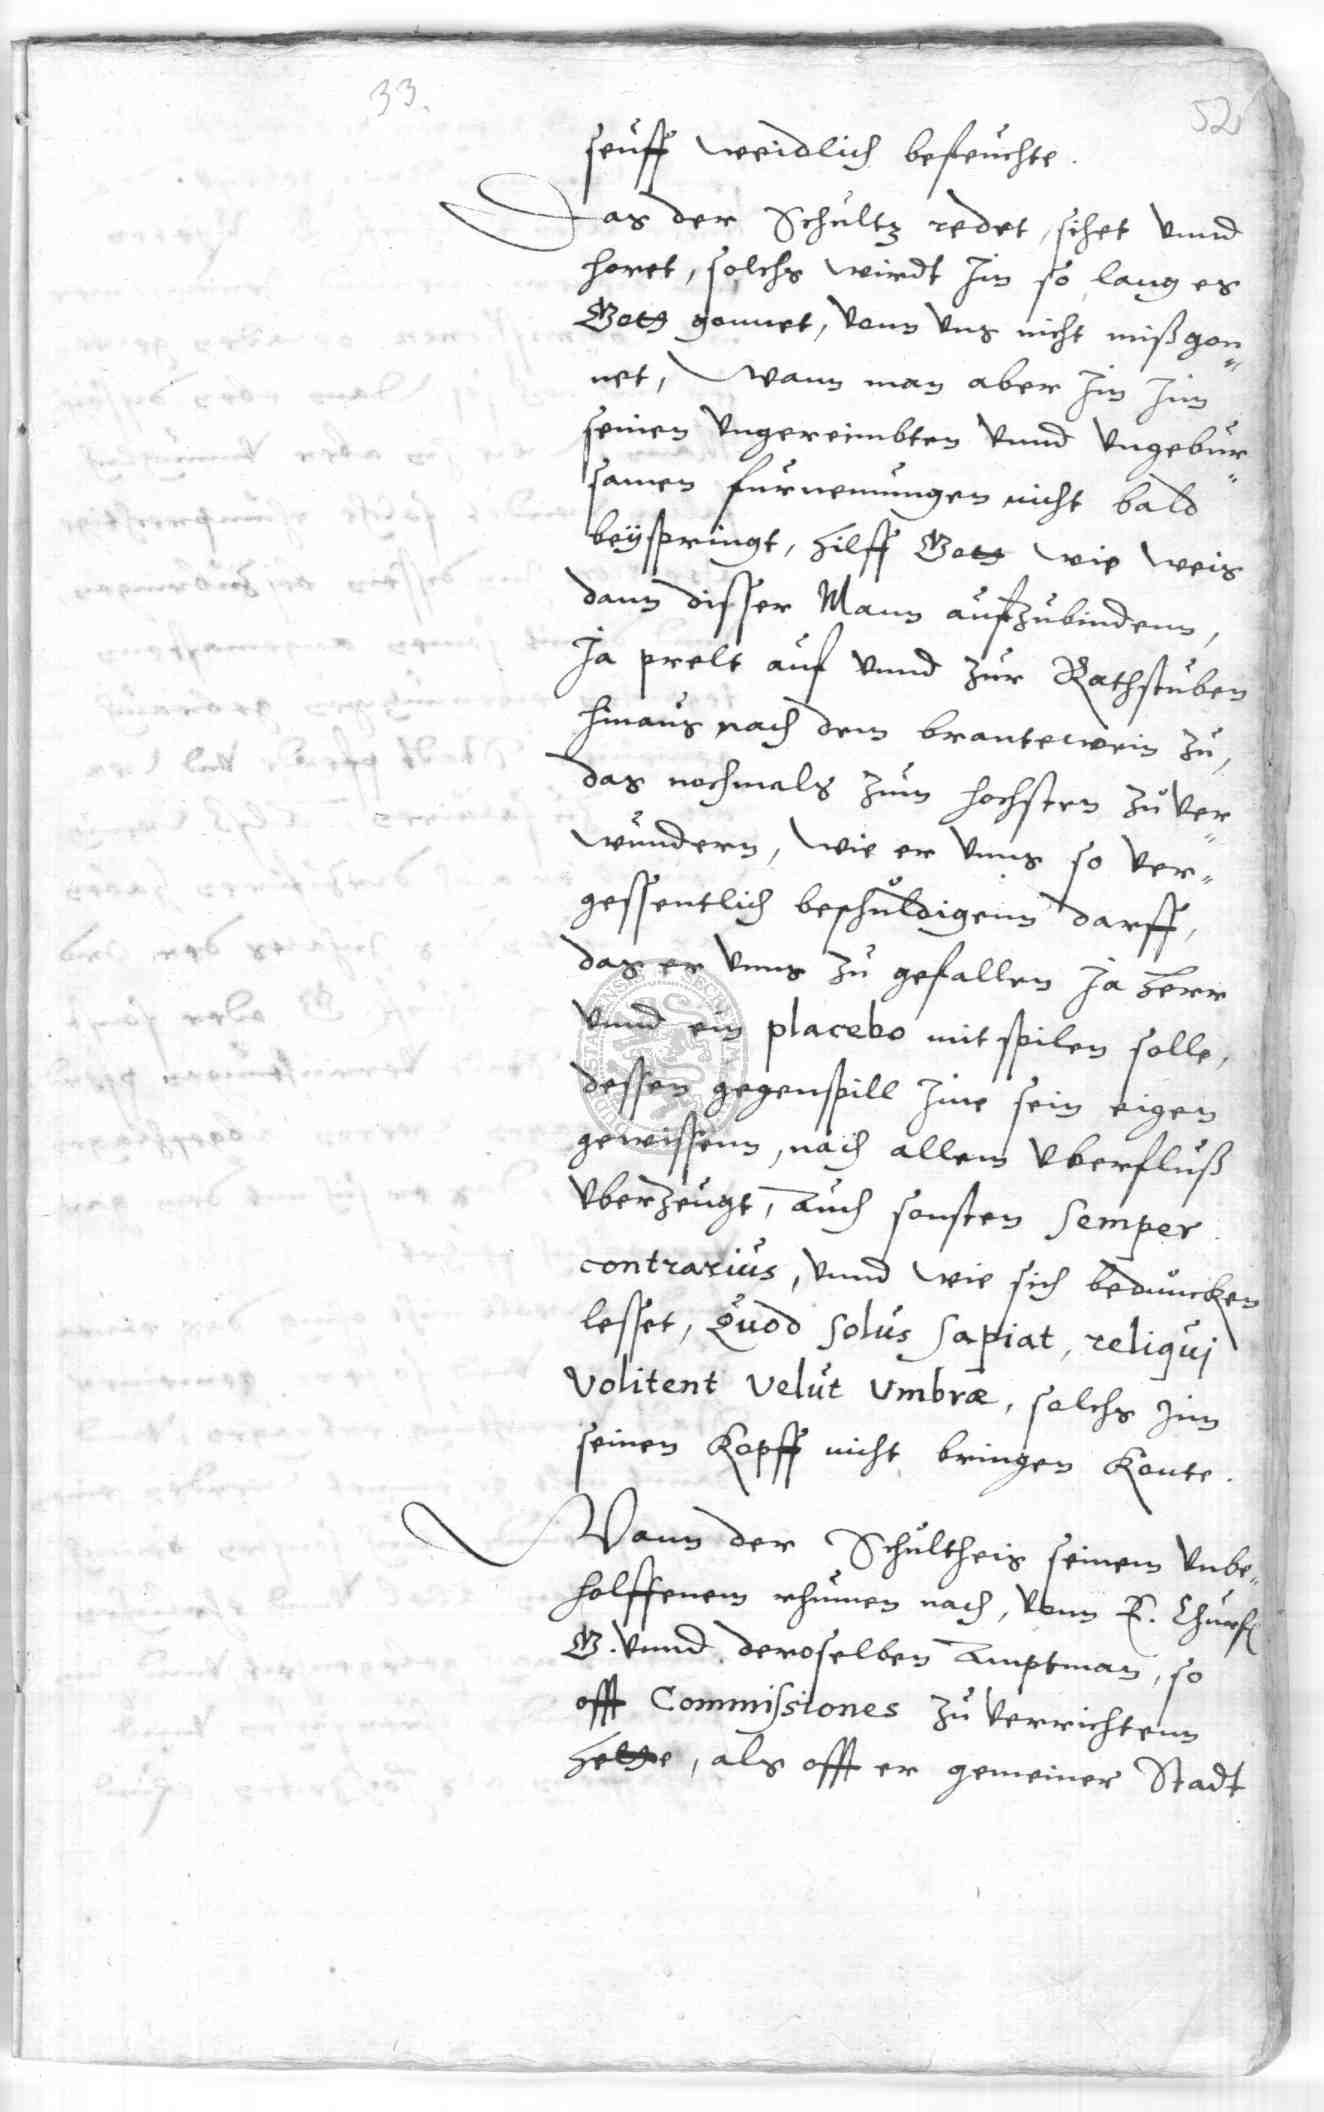 33.
52
seuff weidlich befeuchte.
Das der Schultz redet, sihet vnnd
horet, solchs wirdt Jm so lang es
Gott gonnet, vonn vns nicht mißgon"
net, Wann man aber Jm Jnn
seinen vngereimbten vnnd vngebur"
samen furnemungen nicht bald
beyspringt, hilff Gott wie weis
dann disser Mann aufzubindenn,
Ja prelt auf vnnd zur Rathstuben
hinaus nach dem brantewein zu,
das nochmals zum hochsten zu ver"
wundern, wie er vnns so ver"
gessentlich beschuldigenn darff,
das er vnns zu gefallen Ja Herr
vnnd ein placebo mit spilen solle,
dessen gegenspill Jme sein eigen
gewissenn, nach allem vberfluß
vberzeugt, Auch sonsten semper
contrarius, vnnd wie sich beduncken
lesset, Quod solus sapiat, reliquj
volitent velut vmbræ, solchs Jnn
seinen Kopff nicht bringen konte.
Wann der Schultheis seinem vnbe"
holffenem rhumen nach, vonn E. Churf
G. vnnd deroselben Amptman, so
offt Commissiones zu verrichtenn
hette, als offt er gemeiner Stadt